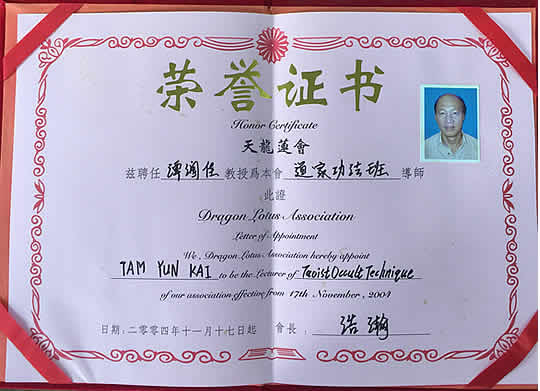 荣誉证书
Honor Certificate
天龍蓮會
兹聘任 教授爲本會 道家功法班 導師
此證
Dragon Lotus Association
Letter of Appointment
We, Dragon Lotus Association hereby appoint
TAM YUN KAI to be the Lecturer of Taoist Occult Technique
of our association effective from 17th November, 2004
日期:二零零四年十一月十七日起 會長: 浩瀚